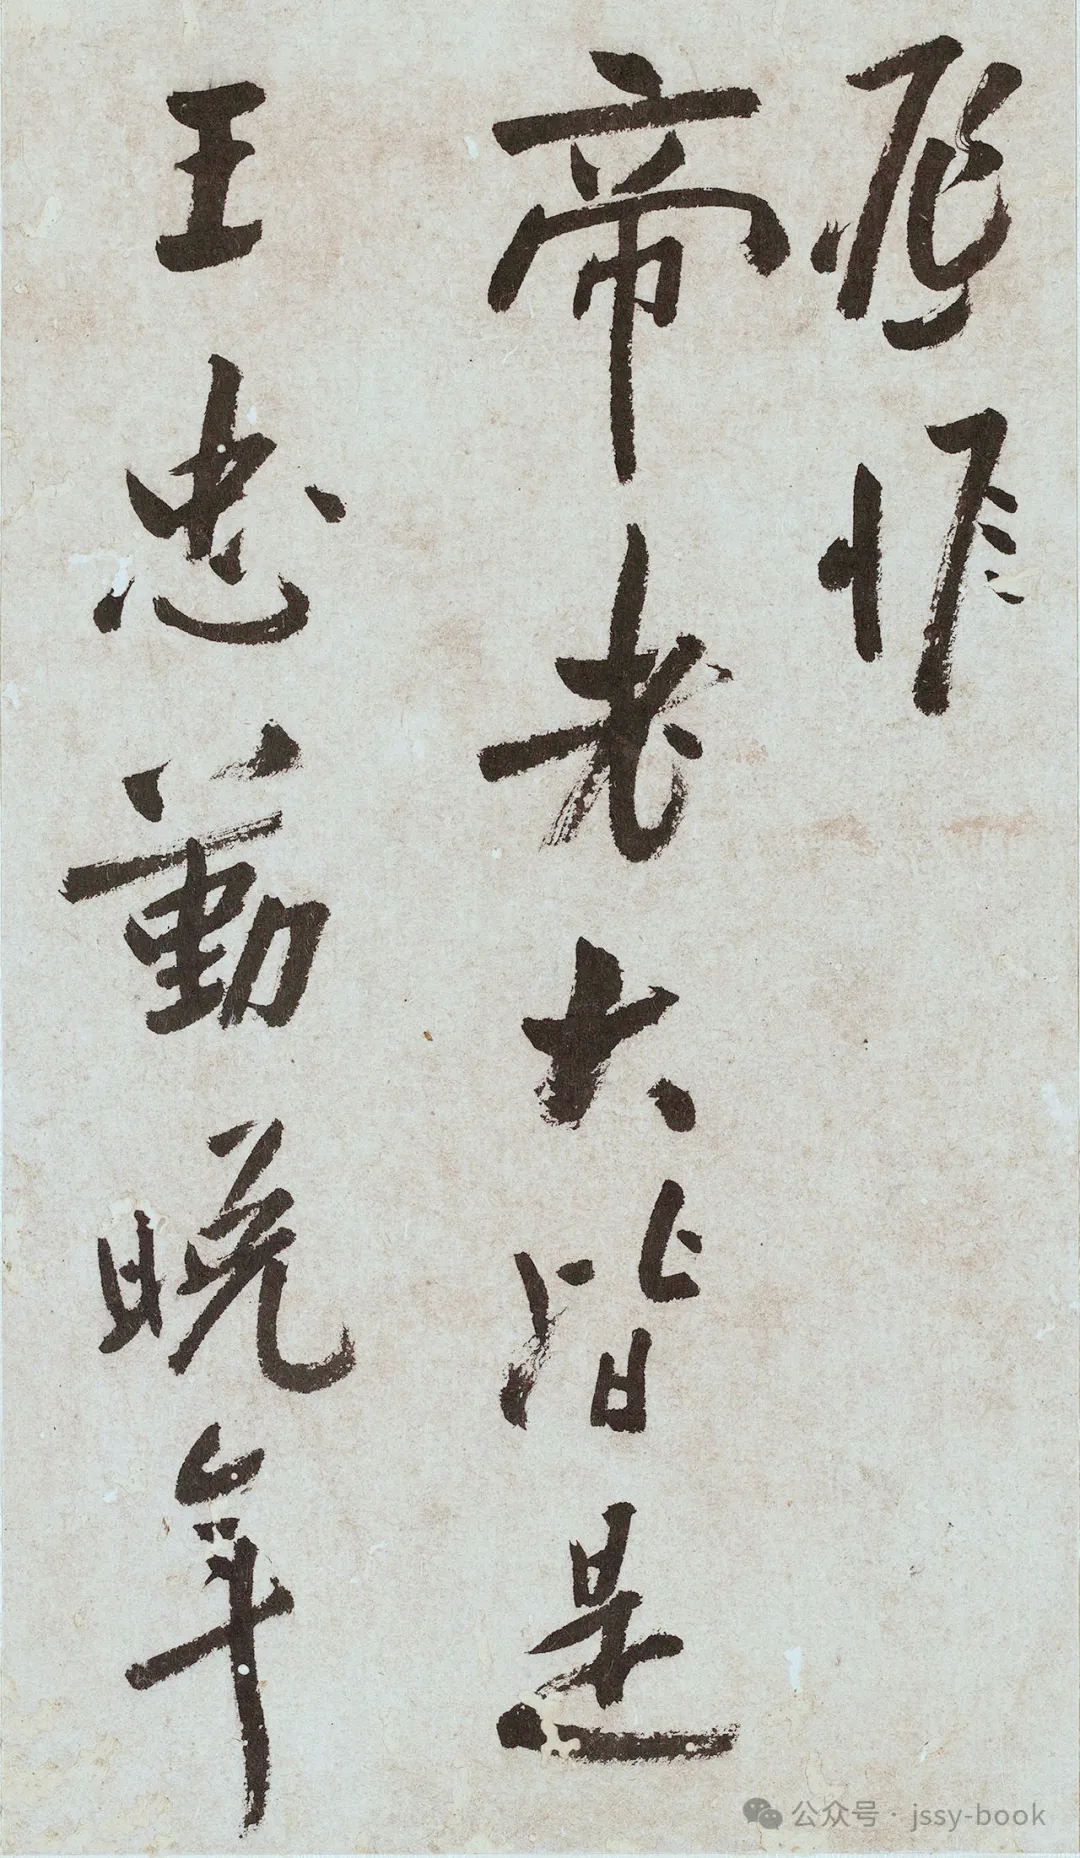 帝老大皆是
王忠勤晚年
公众号·jssy-book